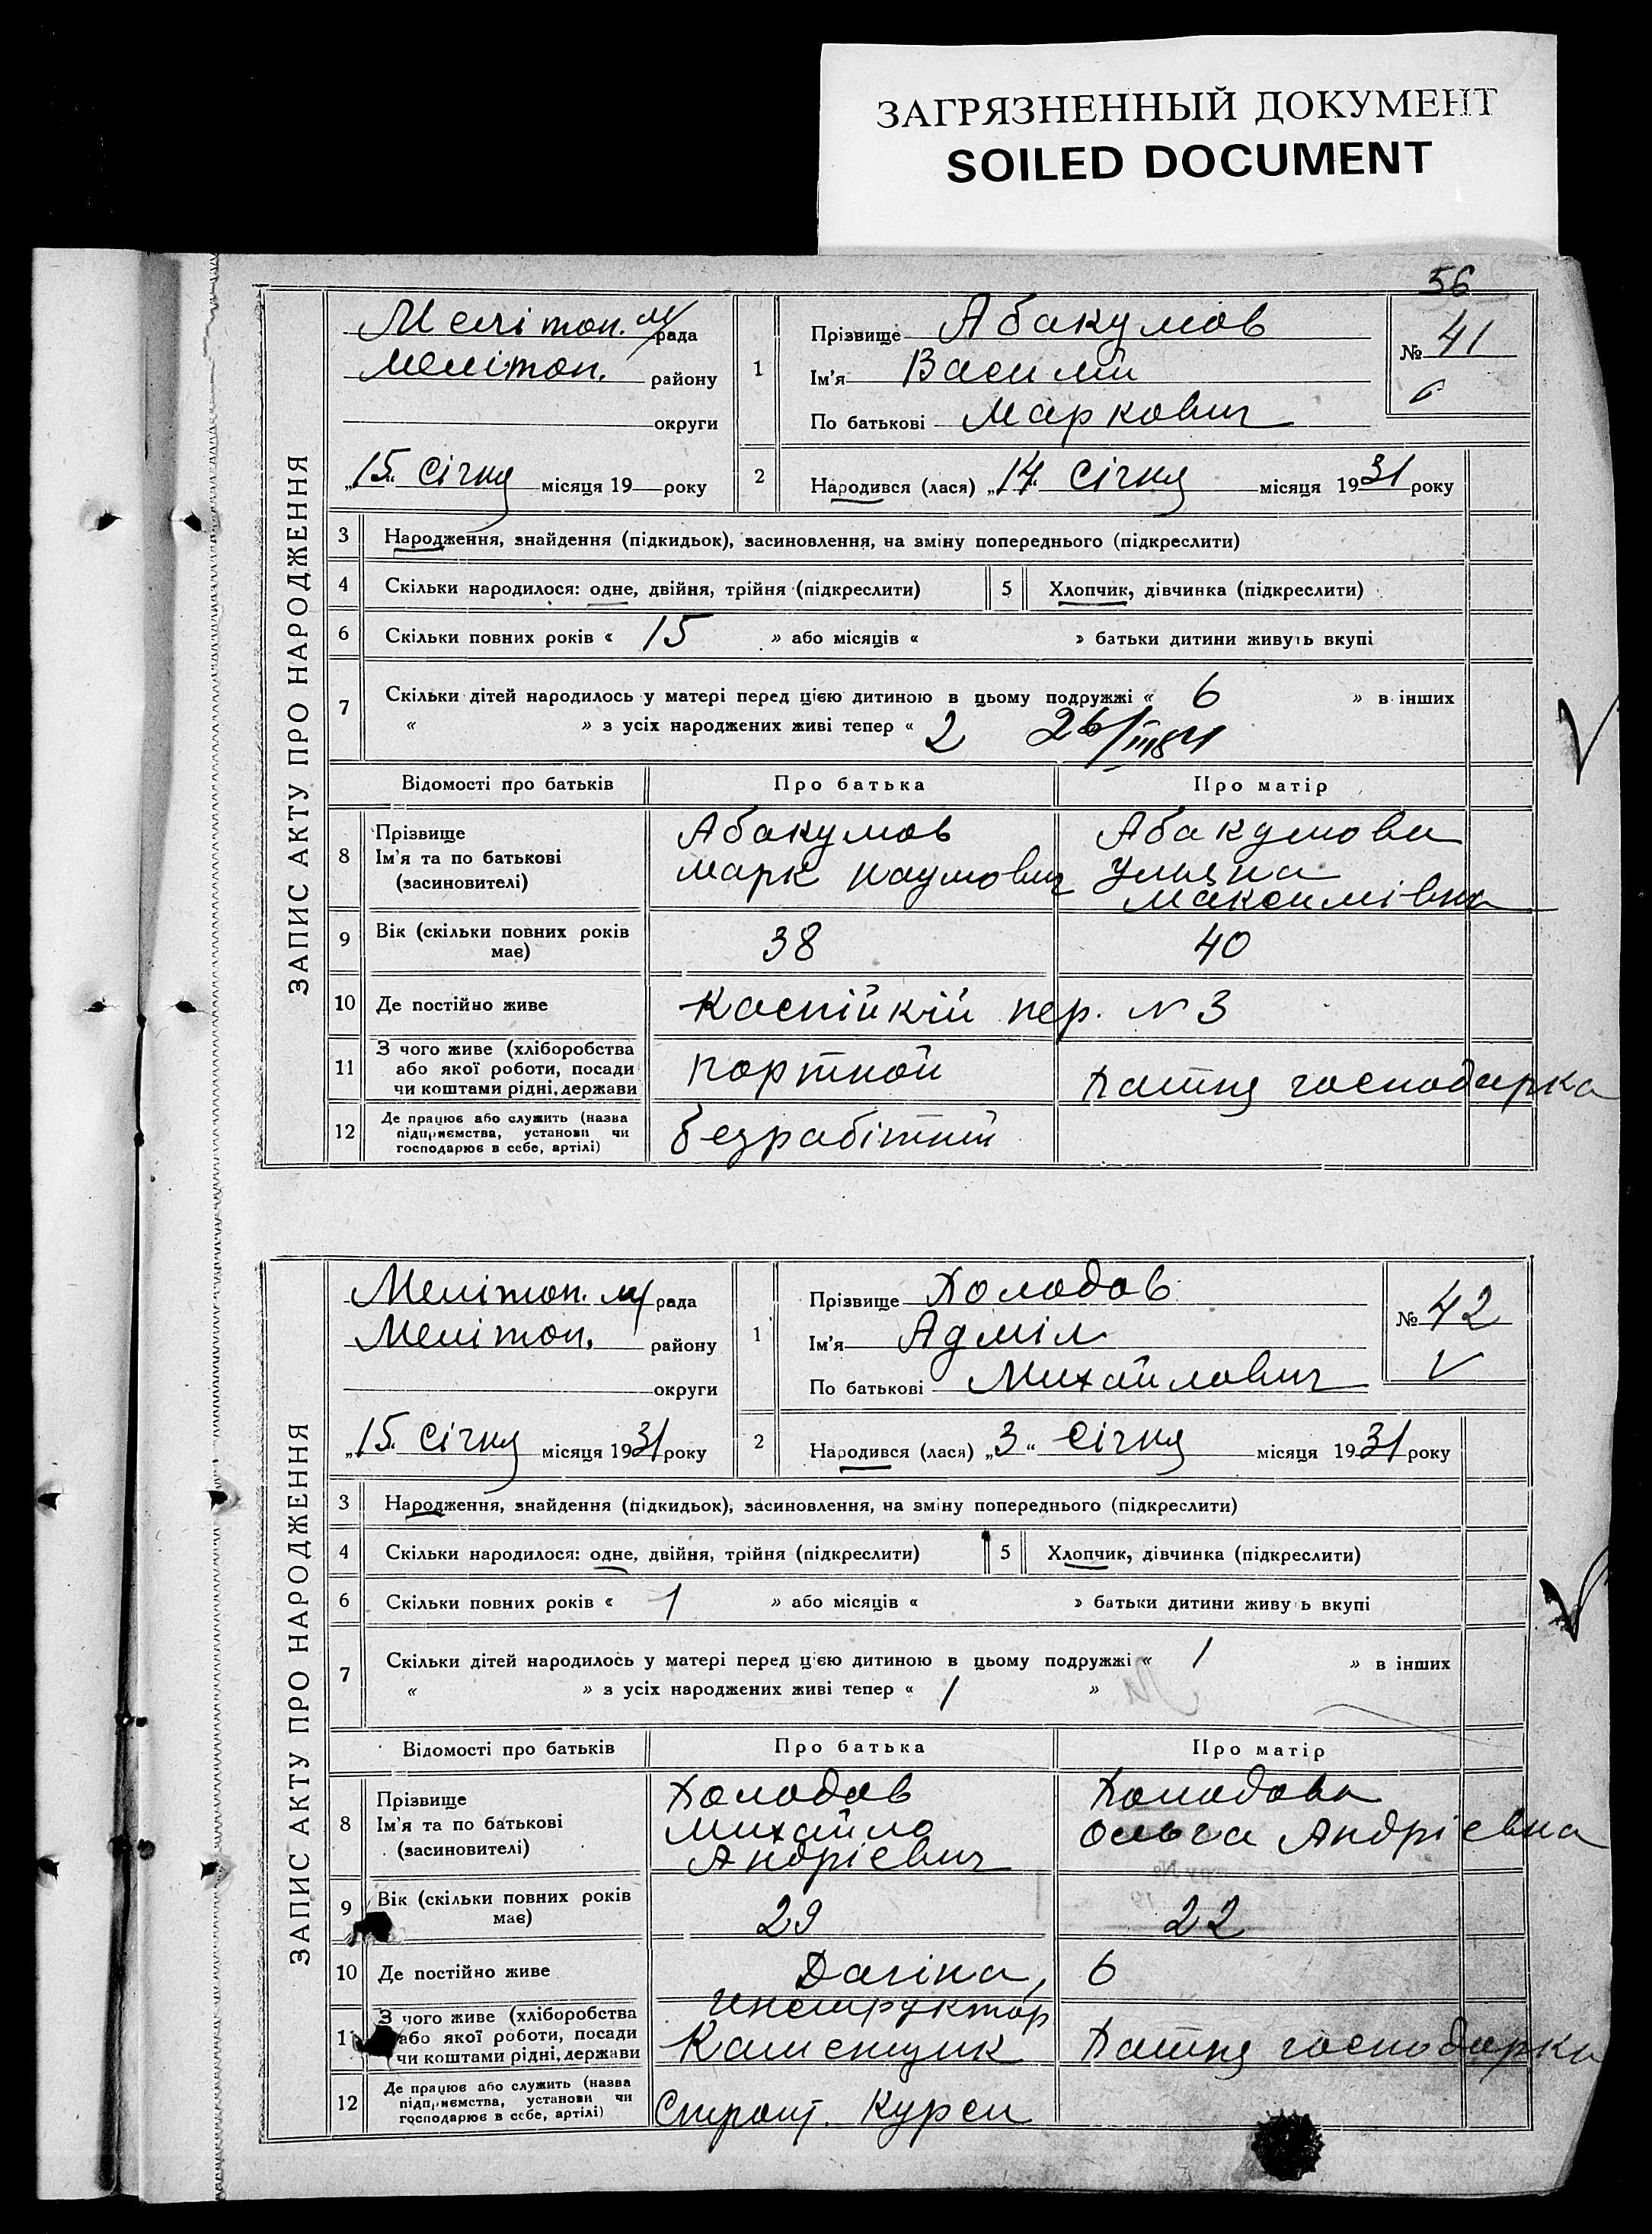 ЗАГРЯЗНЕННЫЙ ДОКУМЕНТ
SOILED DOCUMENT
56
ЗАПИС АКТУ ПРО НАРОДЖЕННЯ
Мелітоп. м/рада
Мелітоп. району
округи
„15“ Січня місяця 19 року
1
Прізвище Абакумов
Ім'я Василій
По батькові Маркович
№ 41
2 Народився (лася) „14“ Січня місяця 1931 року
3 Народження, знайдення (підкидьок), засиновлення, на зміну попереднього (підкреслити)
4 Скільки народилося: одне, двійня, трійня (підкреслити) 5 Хлопчик, дівчинка (підкреслити)
6 Скільки повних років « 15 » або місяців « » батьки дитини живуть вкупі
7 Скільки дітей народилось у матері перед цією дитиною в цьому подружжі « 6 » в інших
« » з усіх народжених живі тепер « 2
Відомості про батьків Про батька Про матір
8 Прізвище Ім'я та по батькові (засиновителі)
Абакумов Марк Наумович
Абакумова Ульяна Максимівна
9 Вік (скільки повних років має) 38 40
10 Де постійно живе Каспійкій пер. N 3
11 З чого живе (хліборобства або якої роботи, посади чи коштами рідні, держави
портной Хатня господарка
12 Де працює або служить (назва підприємства, установи чи господарює в себе, артілі)
безрабітний
ЗАПИС АКТУ ПРО НАРОДЖЕННЯ
Мелітоп. м/рада
Мелітоп. району
округи
„15“ Січня місяця 1931 року
1
Прізвище Холодов
Ім'я Адміл
По батькові Михайлович
№ 42
2 Народився (лася) „3“ Січня місяця 1931 року
3 Народження, знайдення (підкидьок), засиновлення, на зміну попереднього (підкреслити)
4 Скільки народилося: одне, двійня, трійня (підкреслити) 5 Хлопчик, дівчинка (підкреслити)
6 Скільки повних років « 1 » або місяців « » батьки дитини живуть вкупі
7 Скільки дітей народилось у матері перед цією дитиною в цьому подружжі « 1 » в інших
« » з усіх народжених живі тепер « 1 »
Відомості про батьків Про батька Про матір
8 Прізвище Ім'я та по батькові (засиновителі)
Холодов Михайло Андрієвич
Холодова Ольга Андрієвна
9 Вік (скільки повних років має) 29 22
10 Де постійно живе Даліна, 6
11 З чого живе (хліборобства або якої роботи, посади чи коштами рідні, держави
инструктор Каменщик Хатня господарка
12 Де працює або служить (назва підприємства, установи чи господарює в себе, артілі)
Строит. Курси